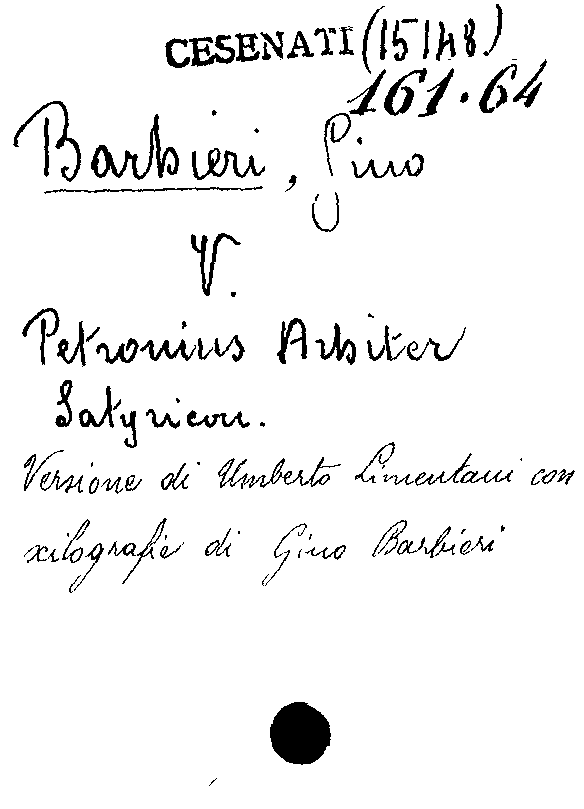 CESENATI (15148)
161.64
Barbieri, Gino
V.
Petronius Arbiter
Satyricon.
Versione di Umberto Limentani con
xilografie di Gino Barbieri